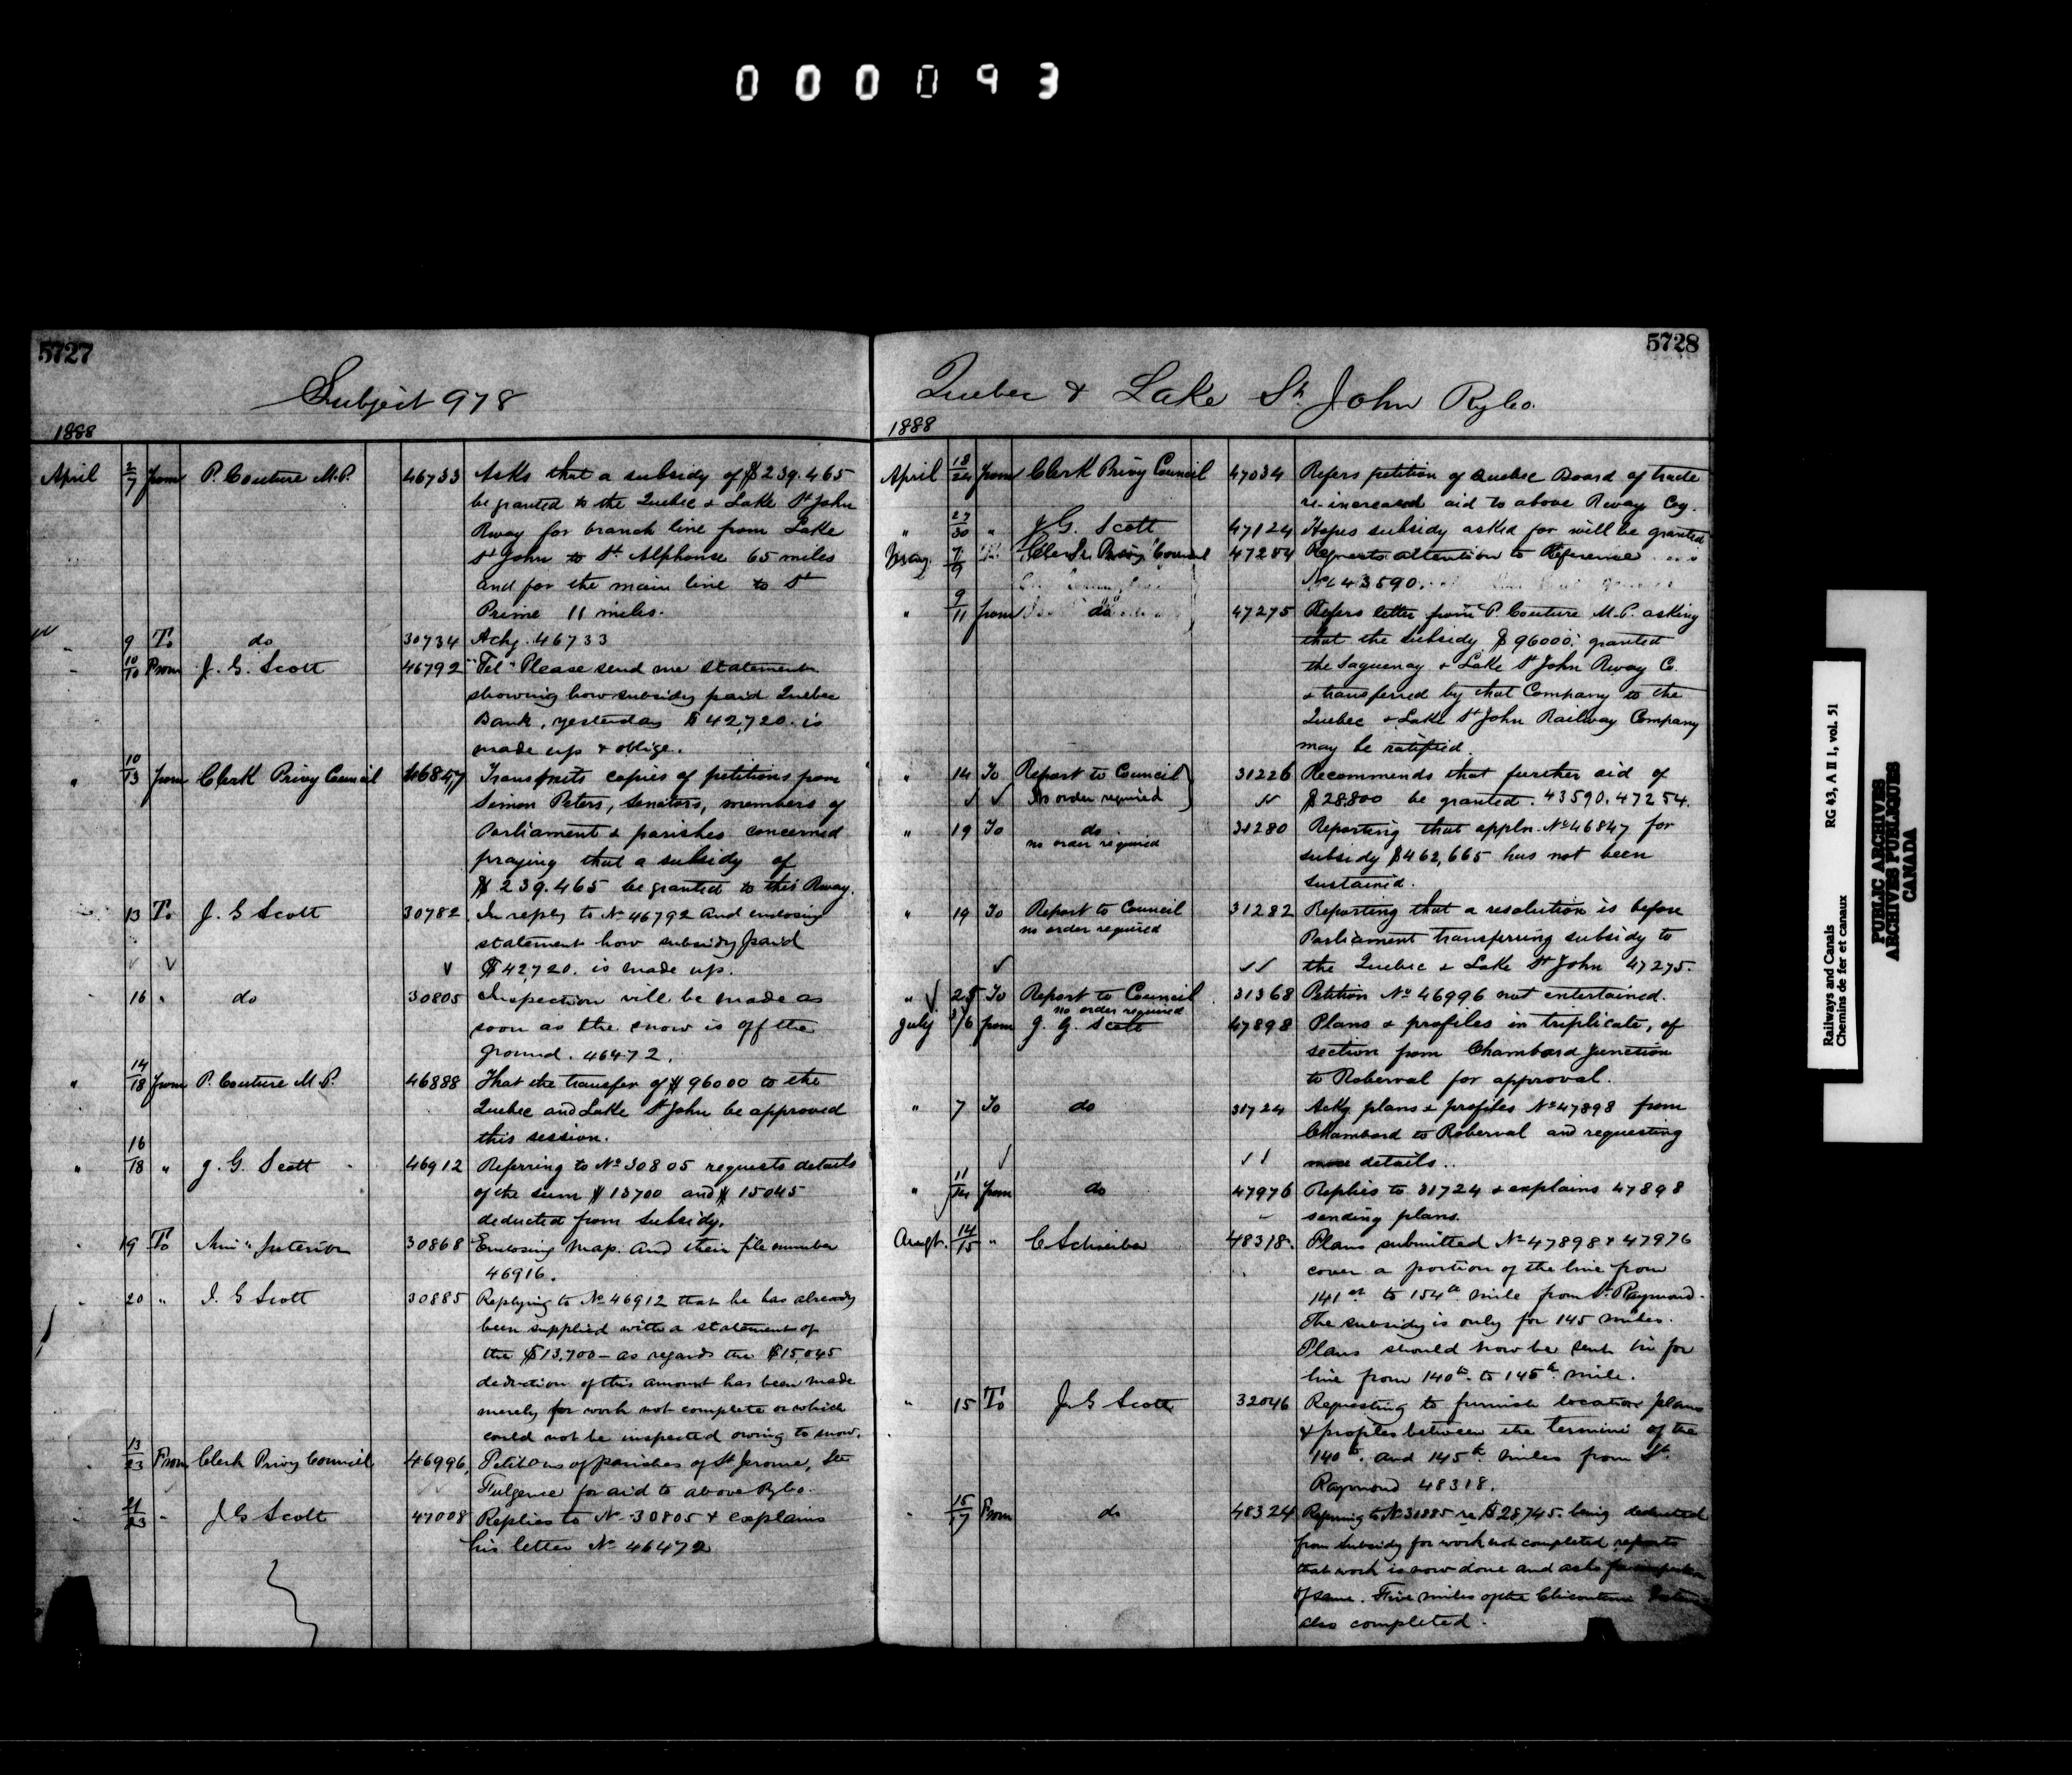 000093
5727
Subject 978
1888
April 2/7 from P. Couture M.P. 46733 Asks that a subsidy of $239.465
be granted to the Quebec & Lake St John
Rway for branch line from Lake
St John to St. Alphonse 65 miles
and for the main line to St
Prime 11 miles.
" 9 To do 30734 Ackg. 46733
" 10/10 From J. G. Scott 46792 "Tel" Please send me statement
showing how subsidy paid Quebec
Bank, yesterday $42,720. is
made up & oblige.
" 10/13 from Clerk Privy Council 46847 Transmits copies of petitions from
Simon Peters, Senators, members of
Parliament & parishes concerned
praying that a subsidy of
$239.465 be granted to this Rway.
" 13 To J. G Scott 30782 In reply to No 46792 and enclosing
statement how subsidy paid
$42,720. is made up.
16 " do 30805 Inspection will be made as
soon as the snow is off the
ground. 46472.
" 14/18 from P. Couture M.P. 46888 That the transfer of $96000 to the
Quebec and Lake St John be approved
this session.
" 16/18 " J. G. Scott 46912 Referring to No 30805 requests details
of the sum $13700 and $15045
deducted from Subsidy.
19 To Min" Interior 30868 Enclosing Map. And their file number
46916.
20 " J. G Scott 30885 Replying to No 46912 that he has already
been supplied with a statement of
the $13,700 – as regards the $15,045
deduction of this amount has been made
merely for work not complete or which
could not be inspected owing to snow.
13/23 From Clerk Privy Council 46996, Petitions of parishes of St Jerome, Ste
Fulgence for aid to above Ry Co.
21/23 " J G Scott 47008 Replies to No 30805 & explains
his letter No 46472
5728
Quebec & Lake St. John Ry Co.
1888
April 18/24 from Clerk Privy Council 47034 Refers petition of Quebec Board of trade
re-increased aid to above Rway Coy.
" 27/30 " J G. Scott 47124 Hopes subsidy asked for will be granted
May 7/9 Clerk Privy Council 47254 Requests attention to Reference
No 43590.
" 9/11 from do 47275 Refers letter from P. Couture M.P. asking
that the subsidy $96000. granted
the Saguenay & Lake St John Rway Co.
& transferred by that Company to the
Quebec & Lake St John Railway Company
may be ratified.
" 14 To Report to Council 31226 Recommends that further aid of
No order required $28,800 be granted. 43590. 47254.
" 19 To do 31280 Reporting that appln. No 46847 for
no order required
subsidy $462,665 has not been
sustained.
" 19 To Report to Council 31282 Reporting that a resolution is before
no order required
Parliament transferring subsidy to
the Quebec & Lake St John 47275.
" 25 To Report to Council 31368 Petition No 46996 not entertained.
no order required
July 3/6 from J. G. Scott 47898 Plans & profiles in triplicate, of
section from Chambord Junction
to Roberval for approval.
" 7 To do 31724 Ackg plans & profiles No 47898 from
Chambord to Roberval and requesting
more details..
" 11/14 from do 47976 Replies to 31724 & explains 47898
sending plans.
Augt. 14/15 " C Schreiber 48318. Plans submitted No 47898 & 47976
cover a portion of the line from
141st to 154th mile from St. Raymond.
The subsidy is only for 145 miles.
Plans should now be sent in for
line from 140th to 145th mile.
" 15 To J. G Scott 32046 Requesting to furnish location plans
& profiles between the termini of the
140th. and 145th miles from St.
Raymond 48318.
" 15/17 From do 48324 Referring to No 30885 re $28,745. being deducted
from Subsidy for work not completed reports
that work is now done and asks for inspection
of same. Five miles of the Chicoutimi
also completed.
Railways and Canals RG 43, A II 1, vol. 51
Chemins de fer et canaux
PUBLIC ARCHIVES
ARCHIVES PUBLIQUES
CANADA